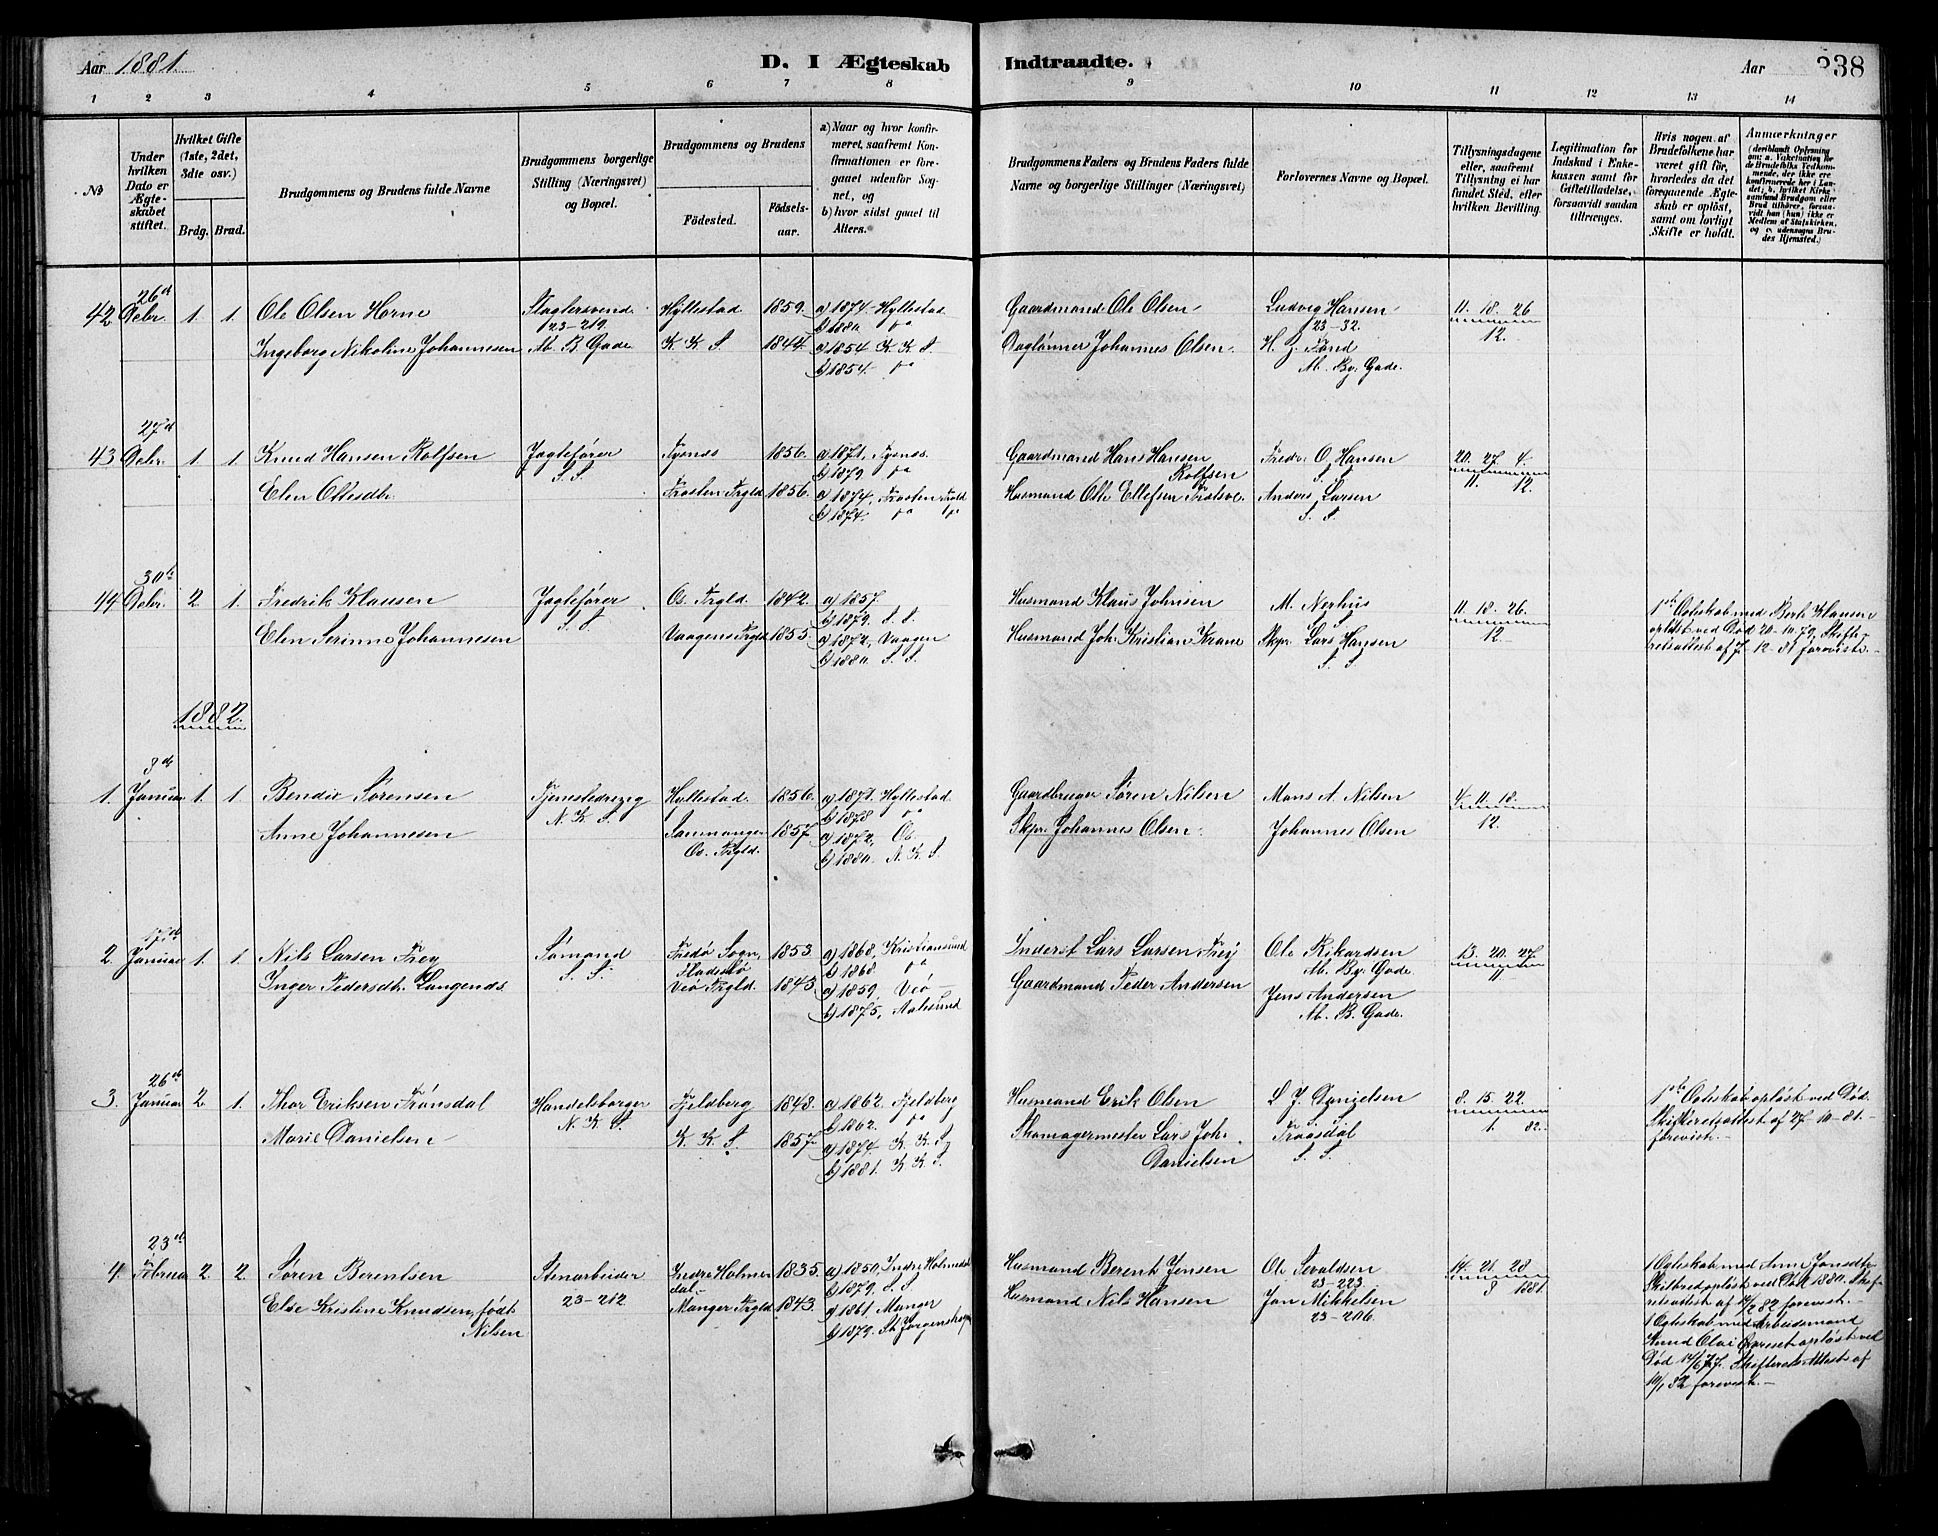 Aar 1881. D. I Ægteskab Indtraadte. Aar 338
1 2 3 4 5 6 7 8 9 10 11 12 13 14
No
Under hvilken Dato er Ægteskabet stiftet.
Hvilket Gifte (1ste, 2det, 3die osv.)
Brdg. Brud.
Brudgommens og Brudens fulde Navne
Brudgommens borgerlige Stilling (Næringsvei) og Bopæl.
Brudgommens og Brudens
Födested. Födselsaar.
a) Naar og hvor konfirmeret, saafremt Konfirmationen er foregaaet udenför Sognet, og
b) hvor sidst gaaet til Alters.
Brudgommens Faders og Brudens Faders fulde Navne og borgerlige Stillinger (Næringsvei)
Forlovernes Navne og Bopæl.
Tillysningsdagene eller, saafremt Tillysning ei har fundet Sted, efter hvilken Bevilling.
Legitimation for Indskud i Enkekassen samt for Giftetilladelse, forsaavidt saadan tiltrænges.
Hvis nogen af Brudefolkene har været gift för, hvorledes da det foregaaende Ægteskab er oplöst, samt om lovligt Skifte er holdt.
Anmærkninger
42. 26d Debr. 1. 1. Ole Olsen Horne Hyllestad 1859. a) 1874 Hyllestad Gaardmand Ole Olsen Ludvig Hansen 11. 18. 26
23-219 b) 1880 23-32. 12.
Ingeborg Nikoline Johannesen M. B. Gade K K S 1844. a) 1854 K. K S. Daglönner Johannes Olsen
b) 1854 M. By. Gade.
43 27d Debr. 1. 1 Knud Hansen Rolfsen Jagtefører Tysnæs 1856. a) 1871, Tysnæs Gaardmand Hans Hansen Rolfsen Fredr. O. Hansen 20. 27. 4.
S. S. b) 1879 S. S. 11. 12.
Elen Olesdtr. 1856. a) 1874, Husmand Ole Ellefsen Anders Larsen
b) 1874. S. S.
44 30te Debr. 2. 1. Fredrik Klausen Jagtefører Os. Prgld. 1842. a) 1857. Husmand Klaus Johnsen M. Nerhus 11. 18. 26.
S. S. b) 1879. S. S. 12.
Elen Serinne Johannesen Vaagens Prgld 1853. a) 1872, Vaagen Husmand Joh. Kristian Krane Skpr. Lars Hansen
b) 1880 S. S. S. S.
1ste Egteskab med Berth Klausen opløst ved Død 20-10 79, Skifteretsattest af 7-12-81 forevist.
1882.
1. 3de Januar 1. 1. Bendix Sørensen Tjenestedreng Hyllestad. 1856. a) 1871. Hyllestad Gaardbruger Søren Nilsen Mons A. Nilsen 4. 11. 18.
N. K. S. b) 1878 12.
Anne Johannesen Os. Prgld. 1857. a) 1872, Os Skpr. Johannes Olsen Johannes Olsen
b) 1880. N. K. S.
2. 17de Januar 1. 1. Nils Larsen Frey Sømand Fredø Sogn, 1853. a) 1868, Kristiansund Inderst Lars Larsen Frey Ole Rikardsen 13. 20. 27.
S. S. b) 1868 M. By. Gade 11
Inger Pedersdtr. Langenæs. Veø Prgld. 1843. a) 1859, Veø Gaardmand Peder Andersen Jens Andersen
b) 1875, Aalesund M. B. Gade.
3. 26de Januar 2. 1. Thor Eriksen Traasdal Handelsborger Fjeldberg 1848. a) 1862. Fjeldberg Husmand Erik Olsen L. J. Danielsen 8. 15. 22.
N. K. S. b) 1862. 1. 82.
Marie Danielsen K. K. S. 1857. a) 1874 K. K. S Skomagermester Lars Joh. Danielsen Traasdal
b) 1881. K K. S. S. S.
1ste Egteskab opløst ved Død. Skifteretsattest af 27-10-81. forevist.
4. 23de Februar 2. 2. Søren Berentsen Stenarbeider Indre Holmedal 1835. a) 1850, Indre Holmedal Husmand Berent Jensen Ole Sevaldsen 14. 21. 28
23-212 b) 1879. S. S. 23-223 1881.
Else Kristine Knudsen, født Nilsen Manger Prgld 1843. a) 1861 Manger Husmand Nils Hansen Jan Mikkelsen
b) 1879. St. Jørgens 23-206.
1 Egteskab med Anne Jansdtr. opløst ved Død 1880. Skifteretsattest af 82 forevist.
1 Egteskab med Arbeidsmand Knud Olai opløst ved Død 14/6 77. Skifterets Attest af 82 forevist.